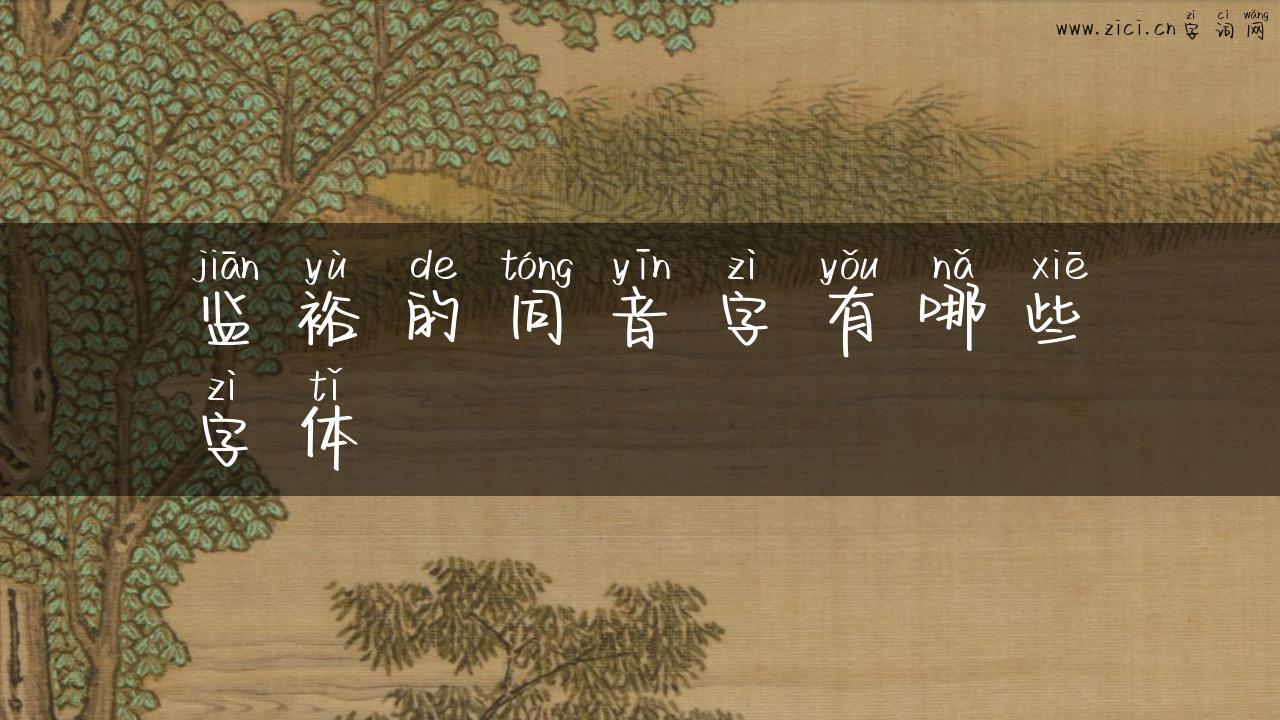 zì cí wǎng
www.zici.cn 字词网
jiān yù de tóng yīn zì yǒu nǎ xiē
监裕的同音字有哪些
zì tǐ
字体